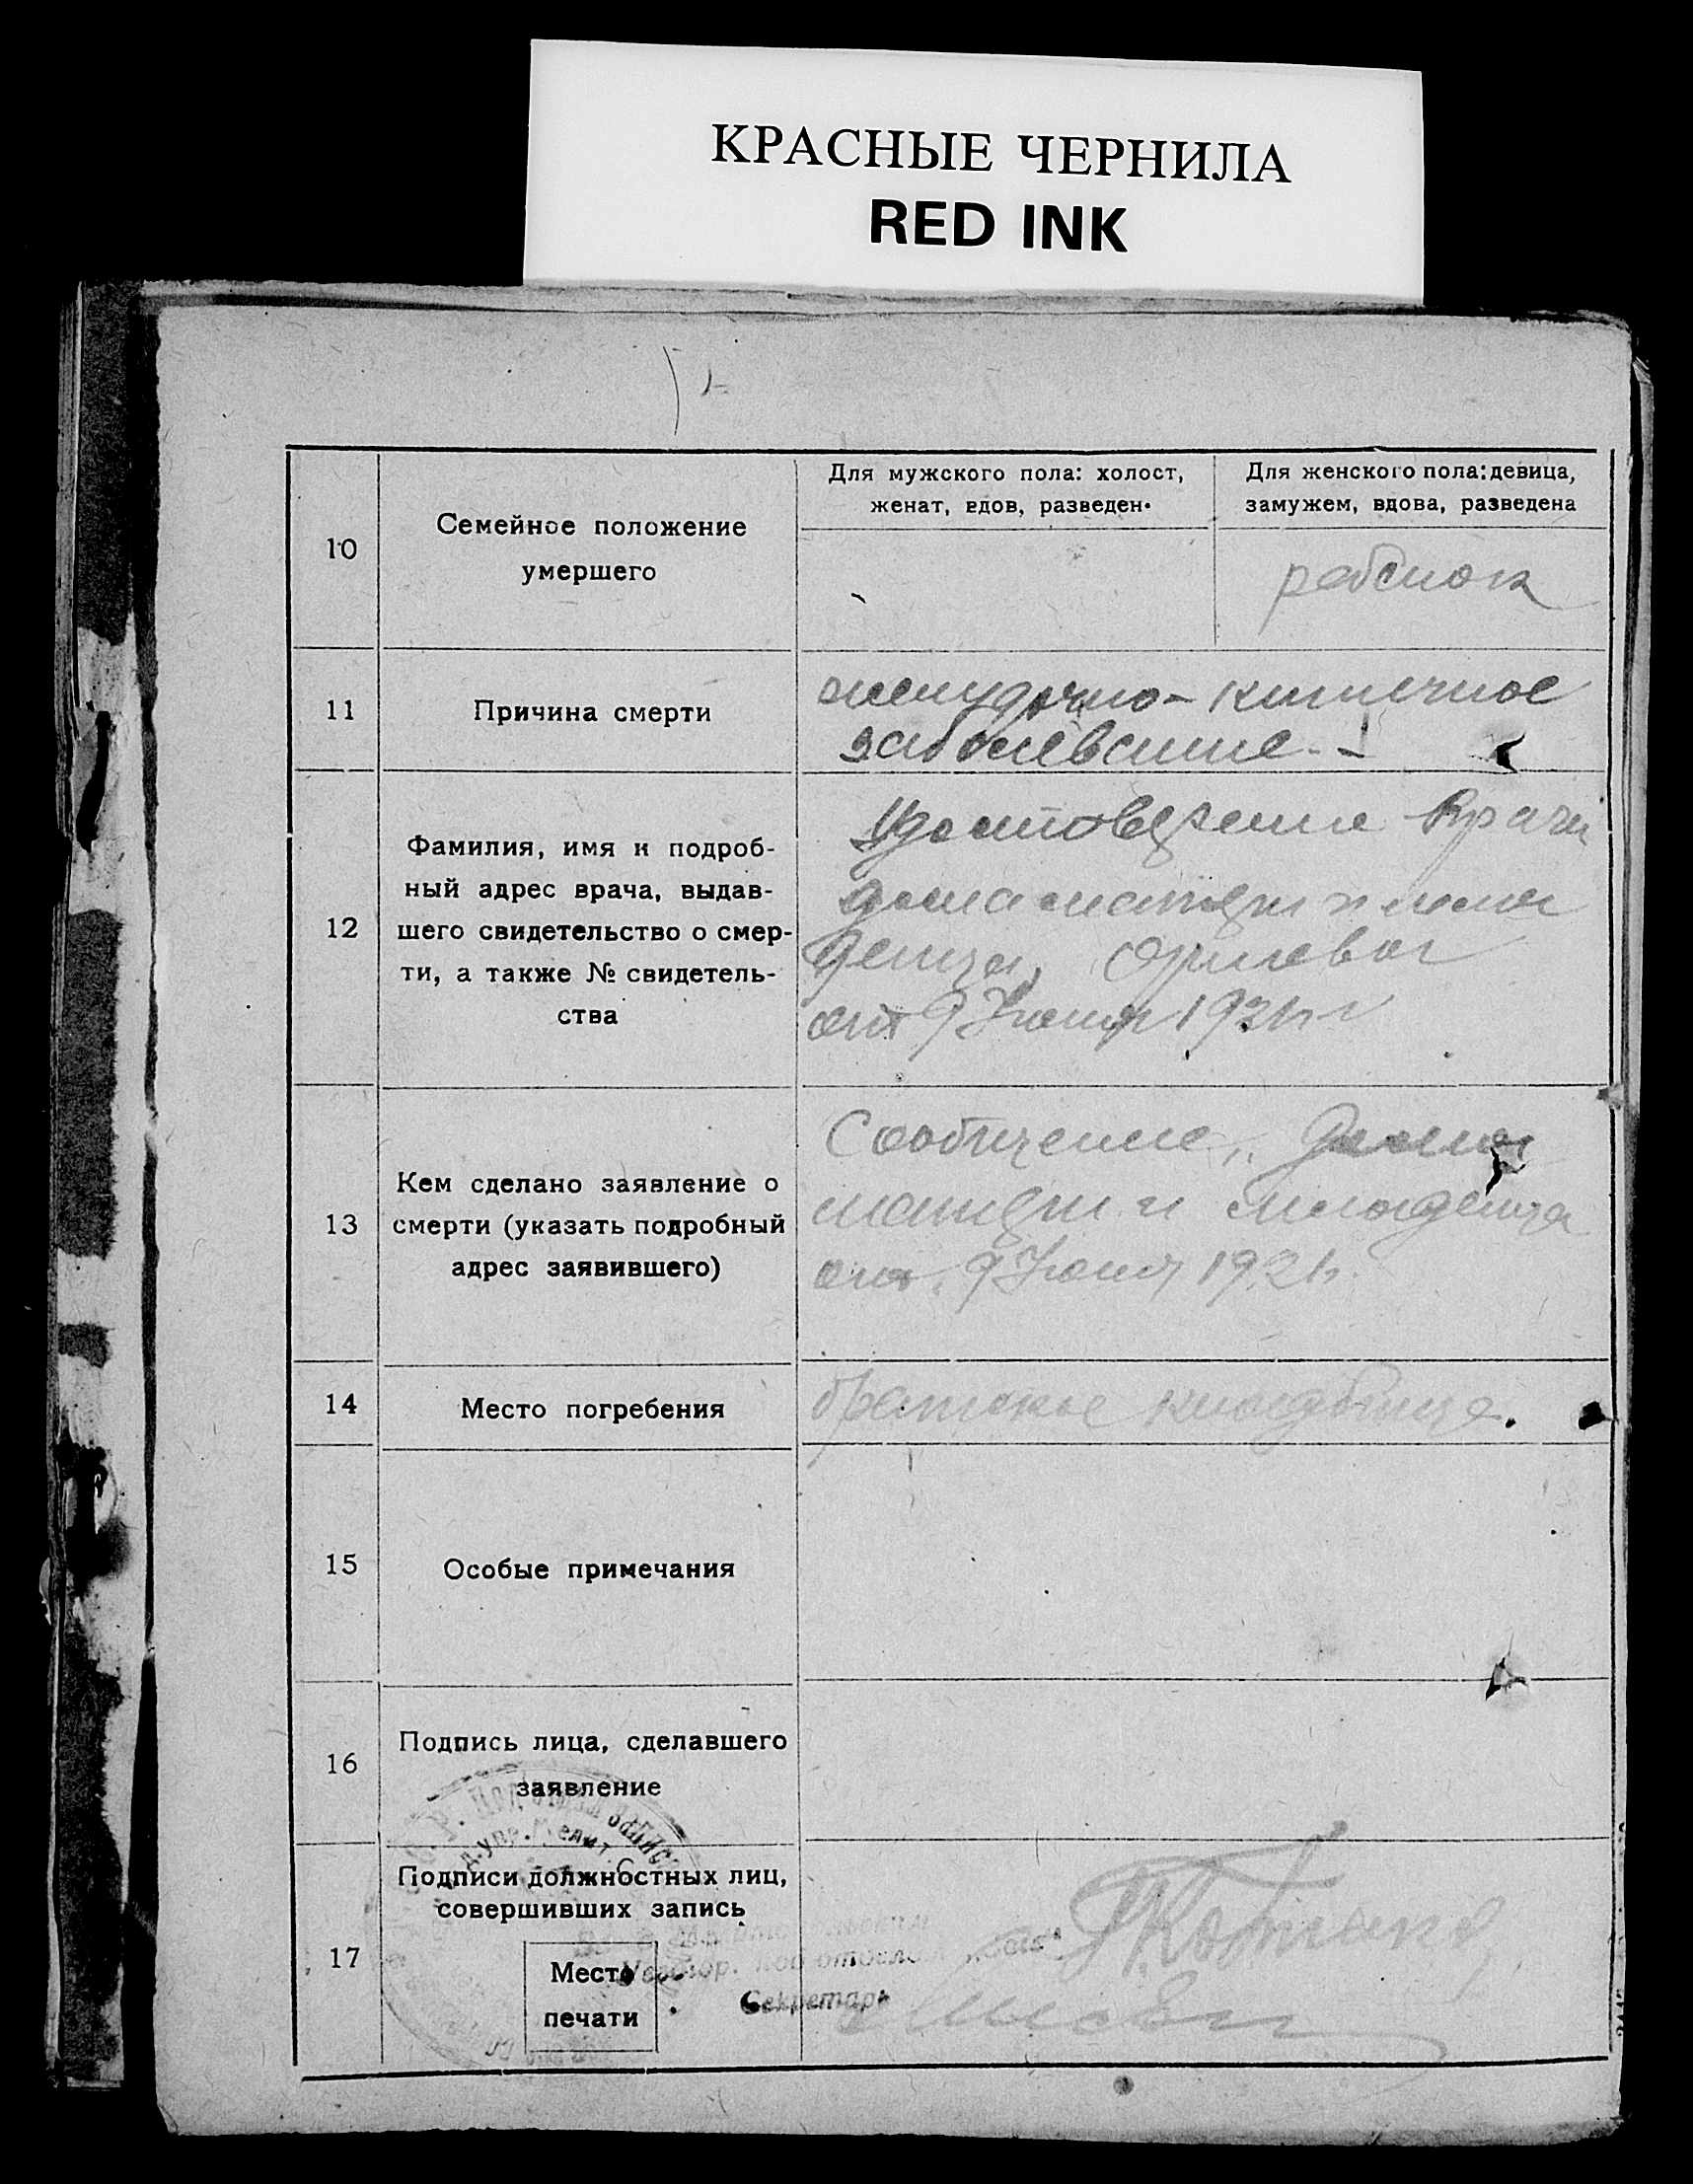 КРАСНЫЕ ЧЕРНИЛА
RED INK
10
Семейное положение
умершего
Для мужского пола: холост,
женат, вдов, разведен.
Для женского пола: девица,
замужем, вдова, разведена
ребенок
11
Причина смерти
желудочно-кишечное
заболевание
12
Фамилия, имя и подроб-
ный адрес врача, выдав-
шего свидетельство о смер-
ти, а также № свидетель-
ства
Удостоверение Врача
дома матери и мла
денца,
от 9 Июня 192
13
Кем сделано заявление о
смерти (указать подробный
адрес заявившего)
Сообщение дома
матери и младенца
от 9 Июня 192
14
Место погребения
братское кладбище.
15
Особые примечания
16
Подпись лица, сделавшего
заявление
17
Подписи должностных лиц,
совершивших запись
Место
печати
Секретарь